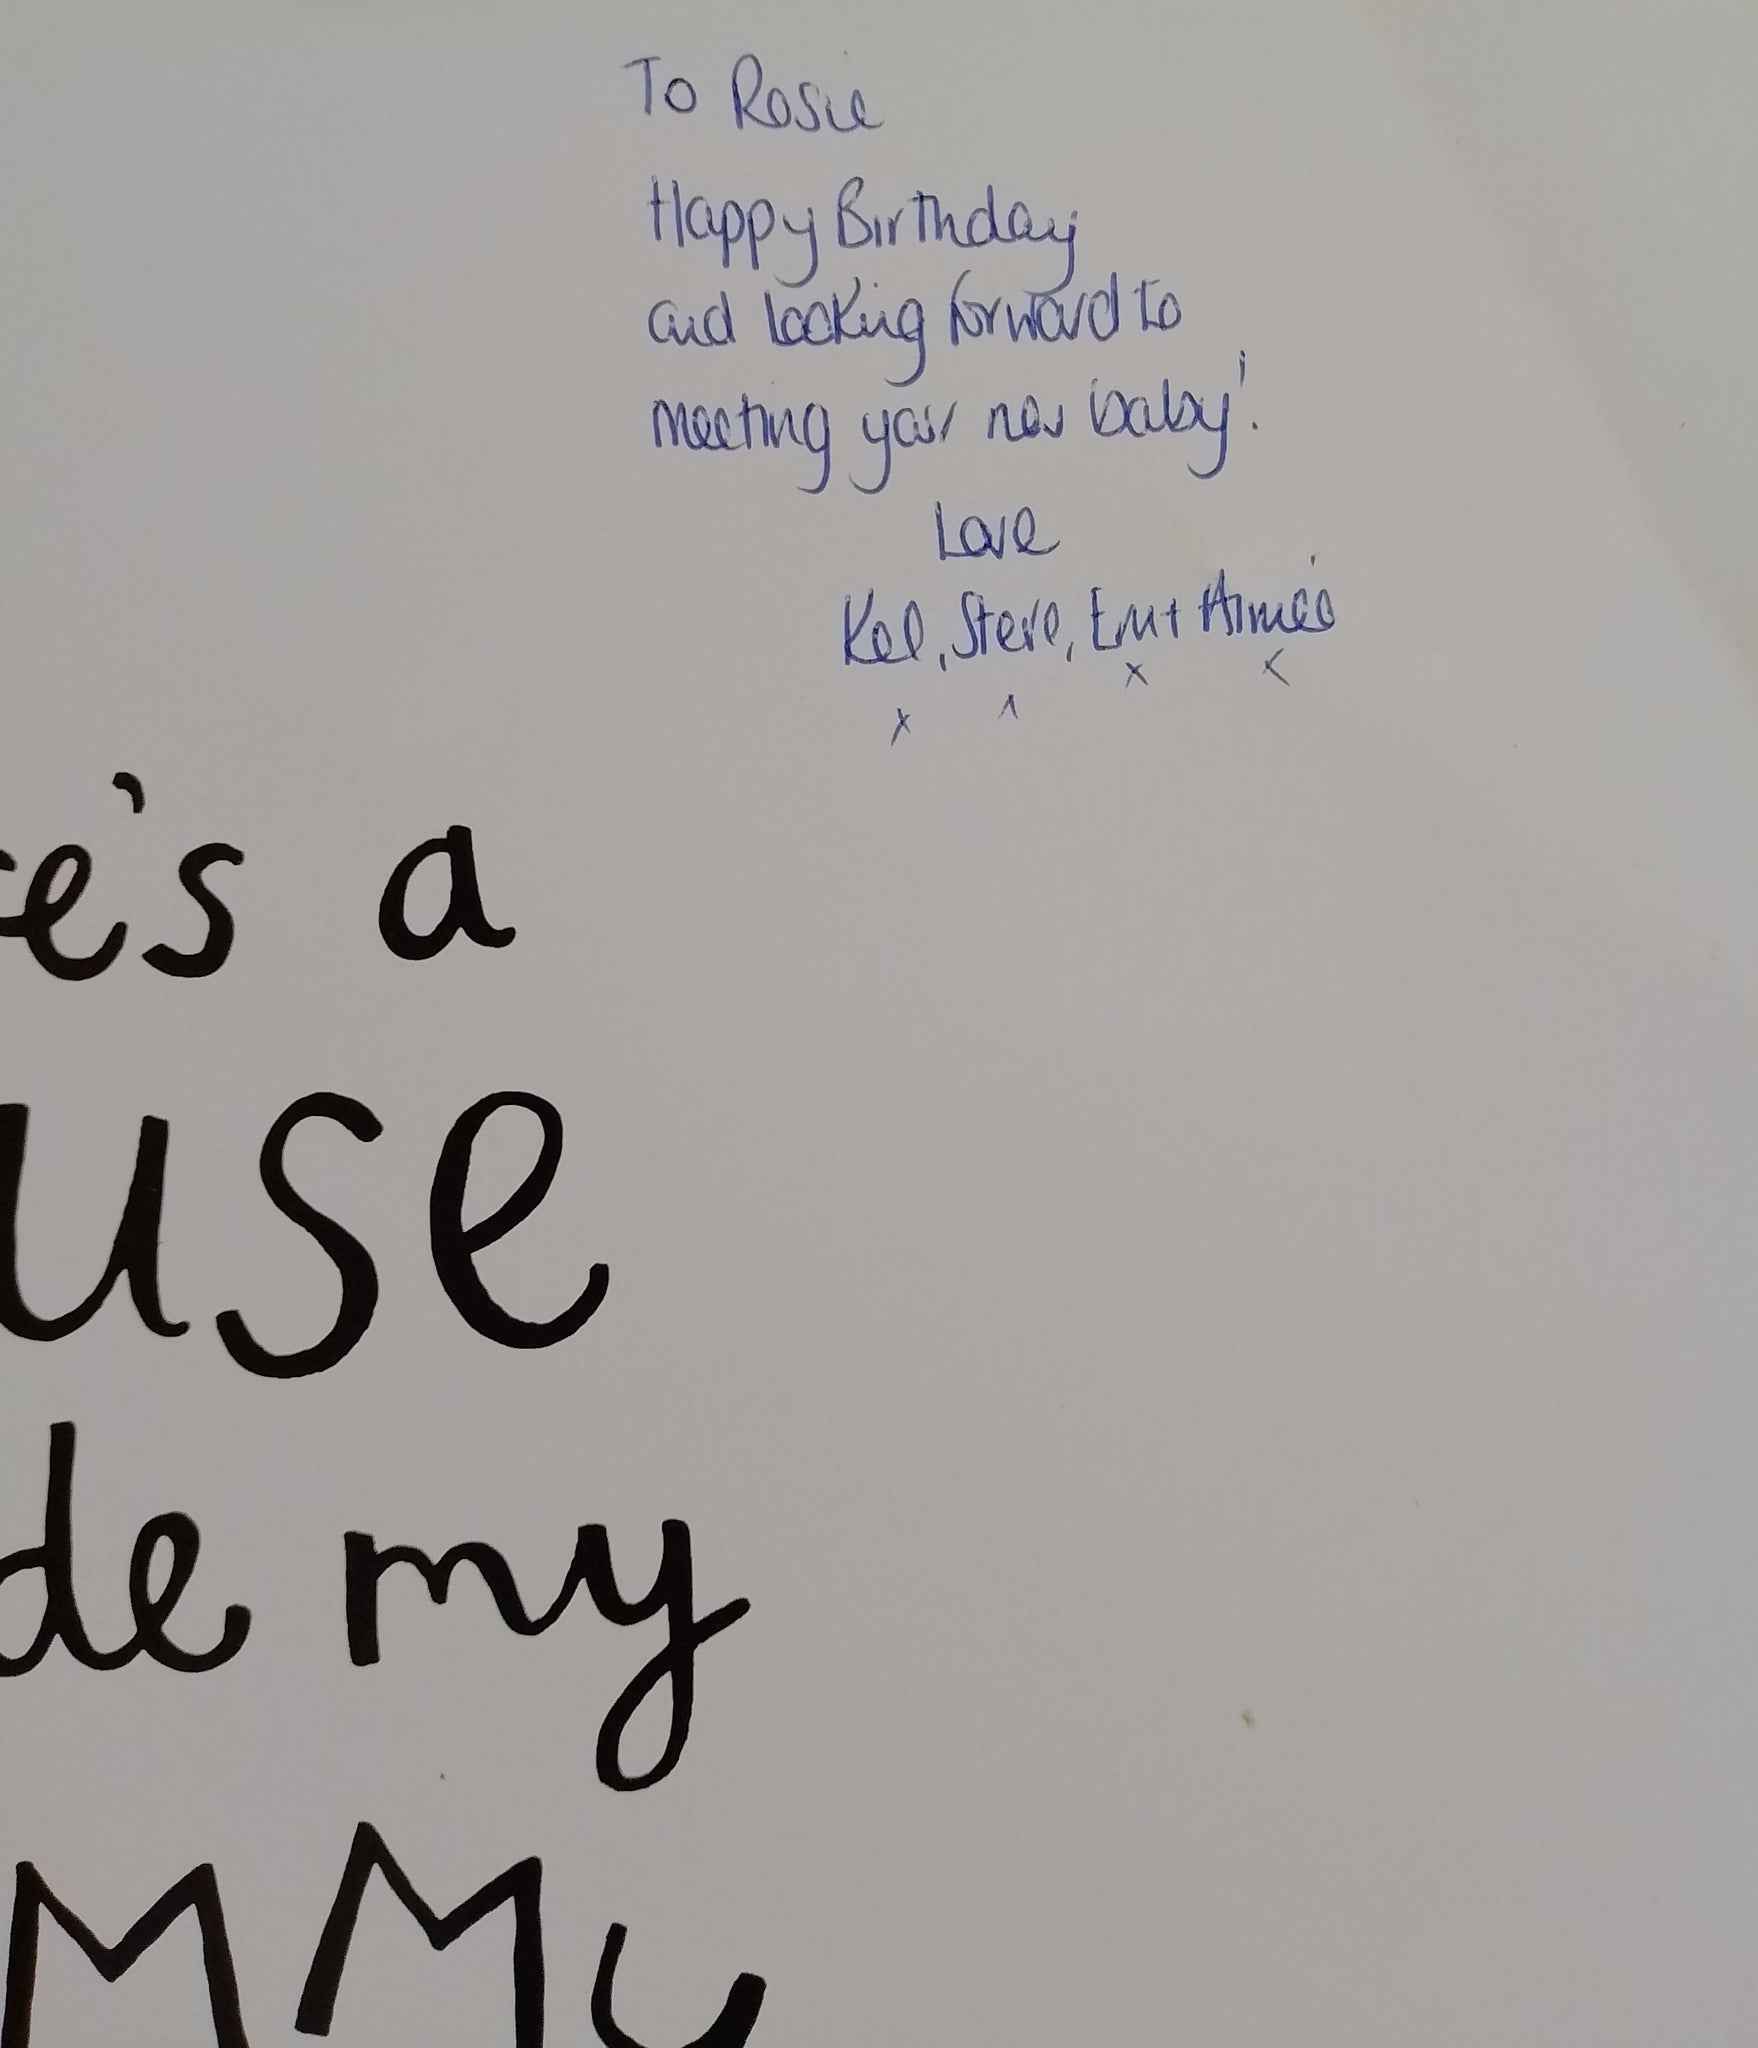 To Rosie
Happy Birthday
and looking forward to
meeting your new baby!
Love
Kel, Steve, Em + Aimée
x x x x
e's a
use
de my
MMY